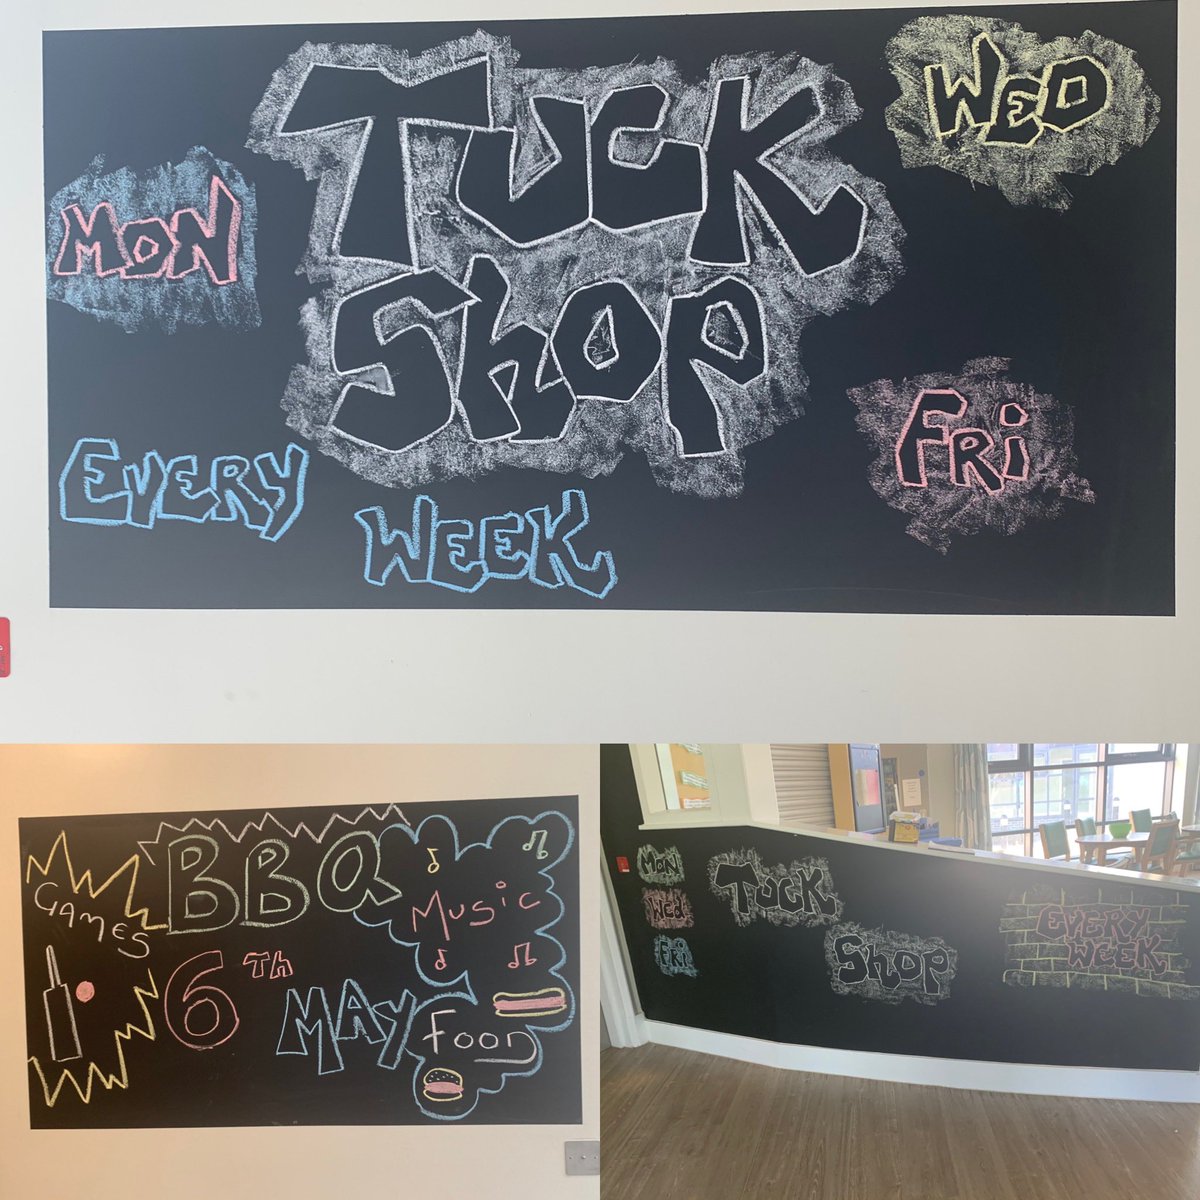 TUCK
Shop
MON
WED
FRi
EVERY
WEEK
BBQ
GAMES
Music
6Th
MAY
Food
MON
Wed
FRi
TUCK
Shop
EVERY
WEEK